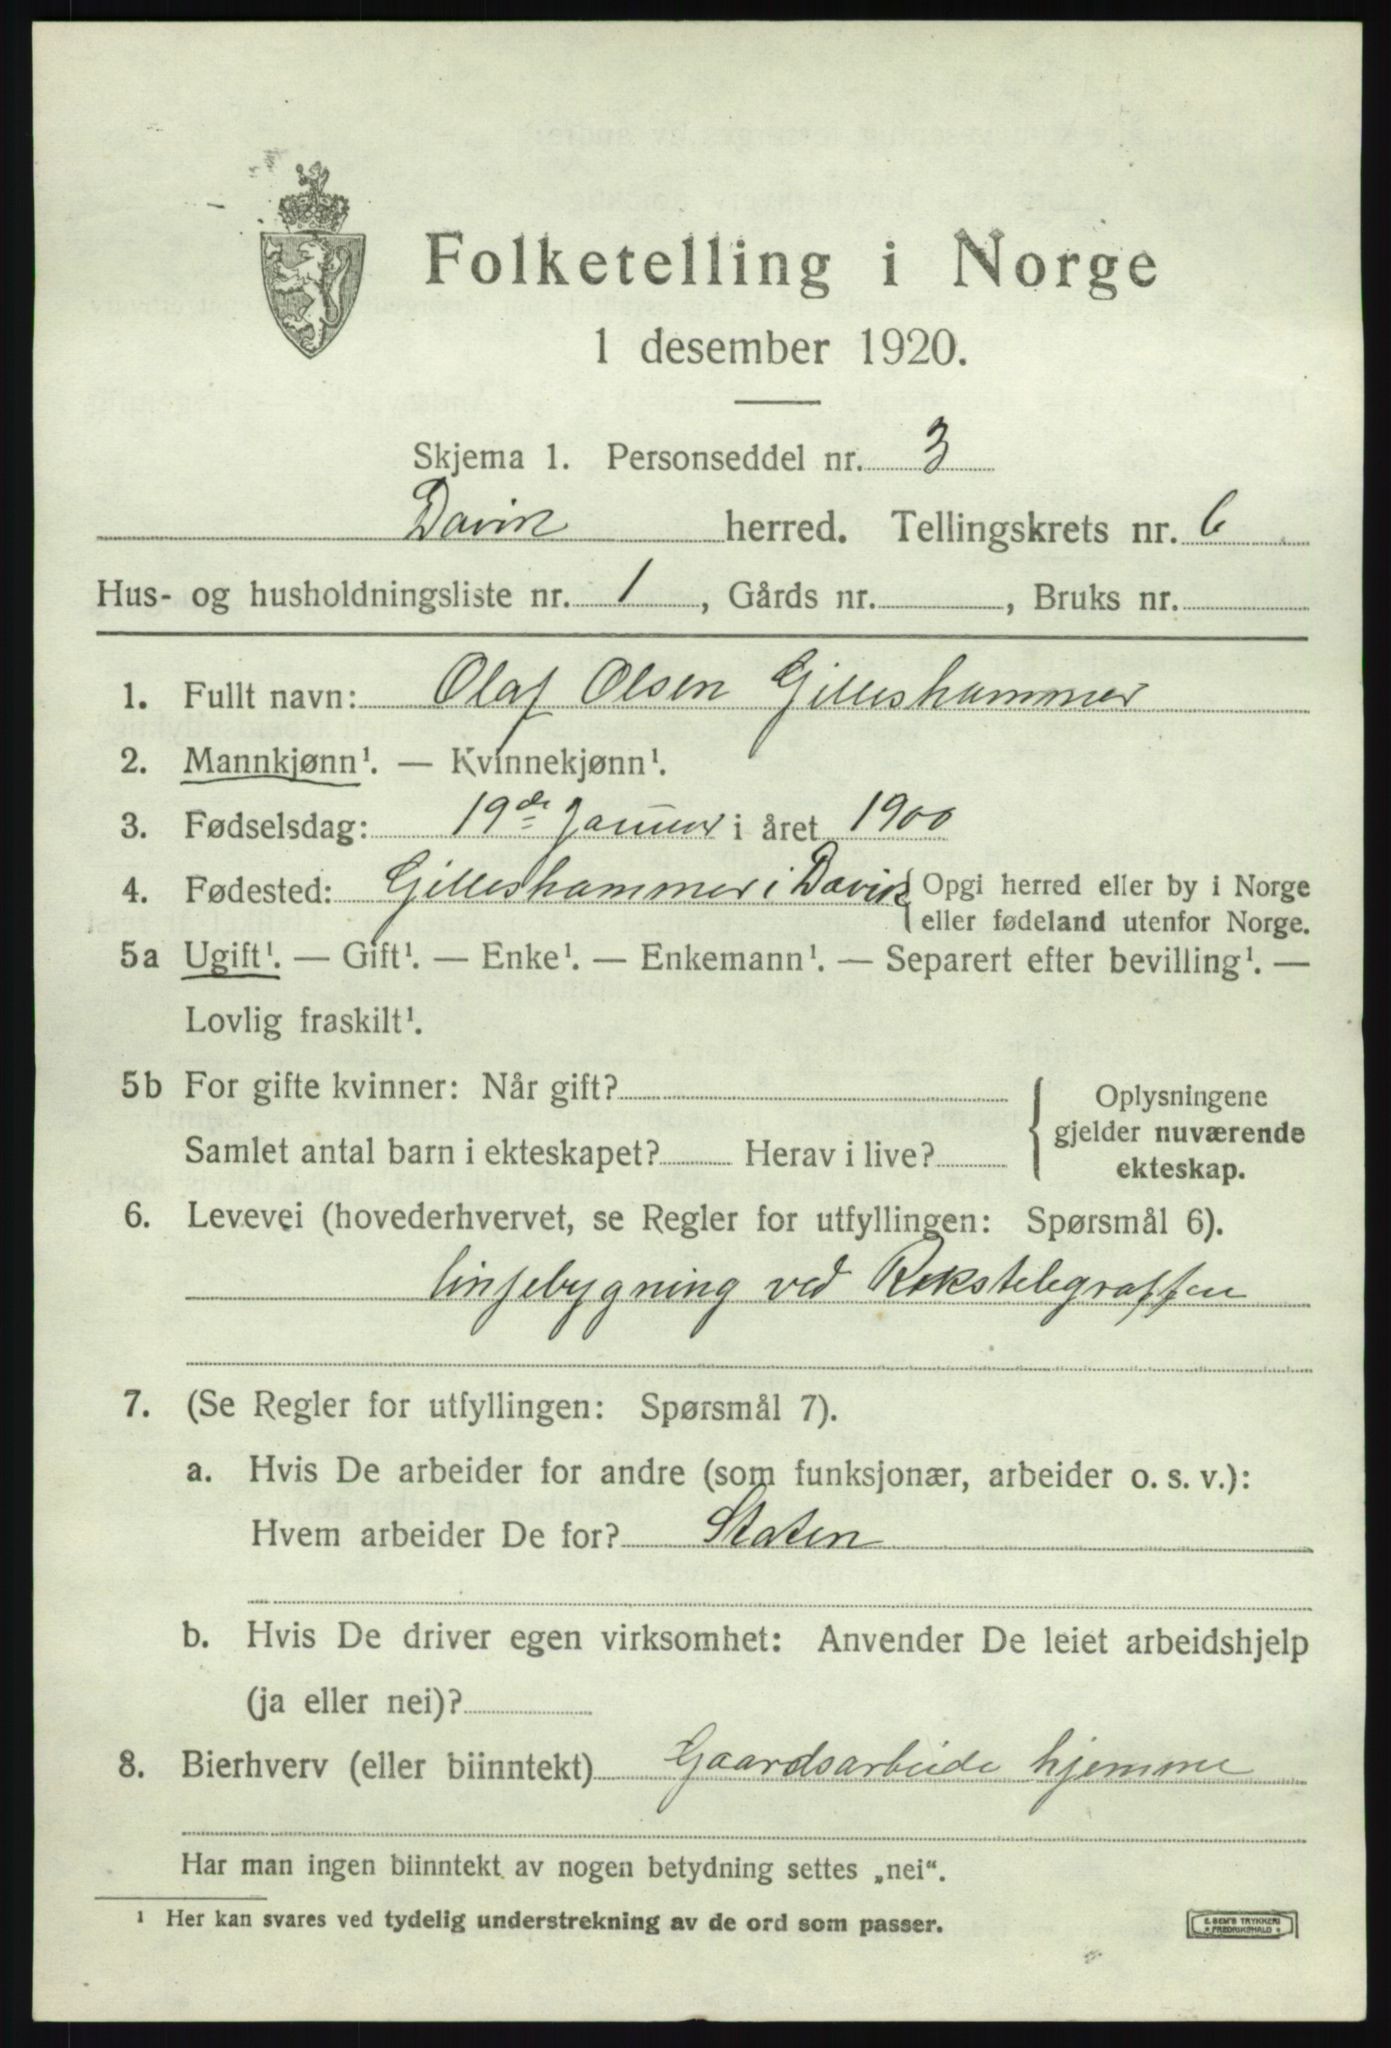 Folketelling i Norge
1 desember 1920.
Skjema 1. Personseddel nr. 3
Davik herred. Tellingskrets nr. 6
Hus- og husholdningsliste nr. 1, Gårds nr. , Bruks nr.
1. Fullt navn: Olaf Olsen Gilleshammer
2. Mannkjønn¹. — Kvinnekjønn¹.
3. Fødselsdag: 19de Januar i året 1900
4. Fødested: Gilleshammer i Davik { Opgi herred eller by i Norge
eller fødeland utenfor Norge.
5a Ugift¹. — Gift¹. — Enke¹. — Enkemann¹. — Separert efter bevilling¹. —
Lovlig fraskilt¹.
5b For gifte kvinner: Når gift?
Samlet antal barn i ekteskapet? Herav i live?
{ Oplysningene
gjelder nuværende
ekteskap.
6. Levevei (hovederhvervet, se Regler for utfyllingen: Spørsmål 6).
linjebygning ved Rikstelegraffen
7. (Se Regler for utfyllingen: Spørsmål 7).
a. Hvis De arbeider for andre (som funksjonær, arbeider o. s. v.):
Hvem arbeider De for? Staten
b. Hvis De driver egen virksomhet: Anvender De leiet arbeidshjelp
(ja eller nei)?
8. Bierhverv (eller biinntekt) Gaardsarbeide hjemme
Har man ingen biinntekt av nogen betydning settes „nei“.
¹ Her kan svares ved tydelig understrekning av de ord som passer.
E. SEM'S TRYKKERI
* FREDRIKSHALD *